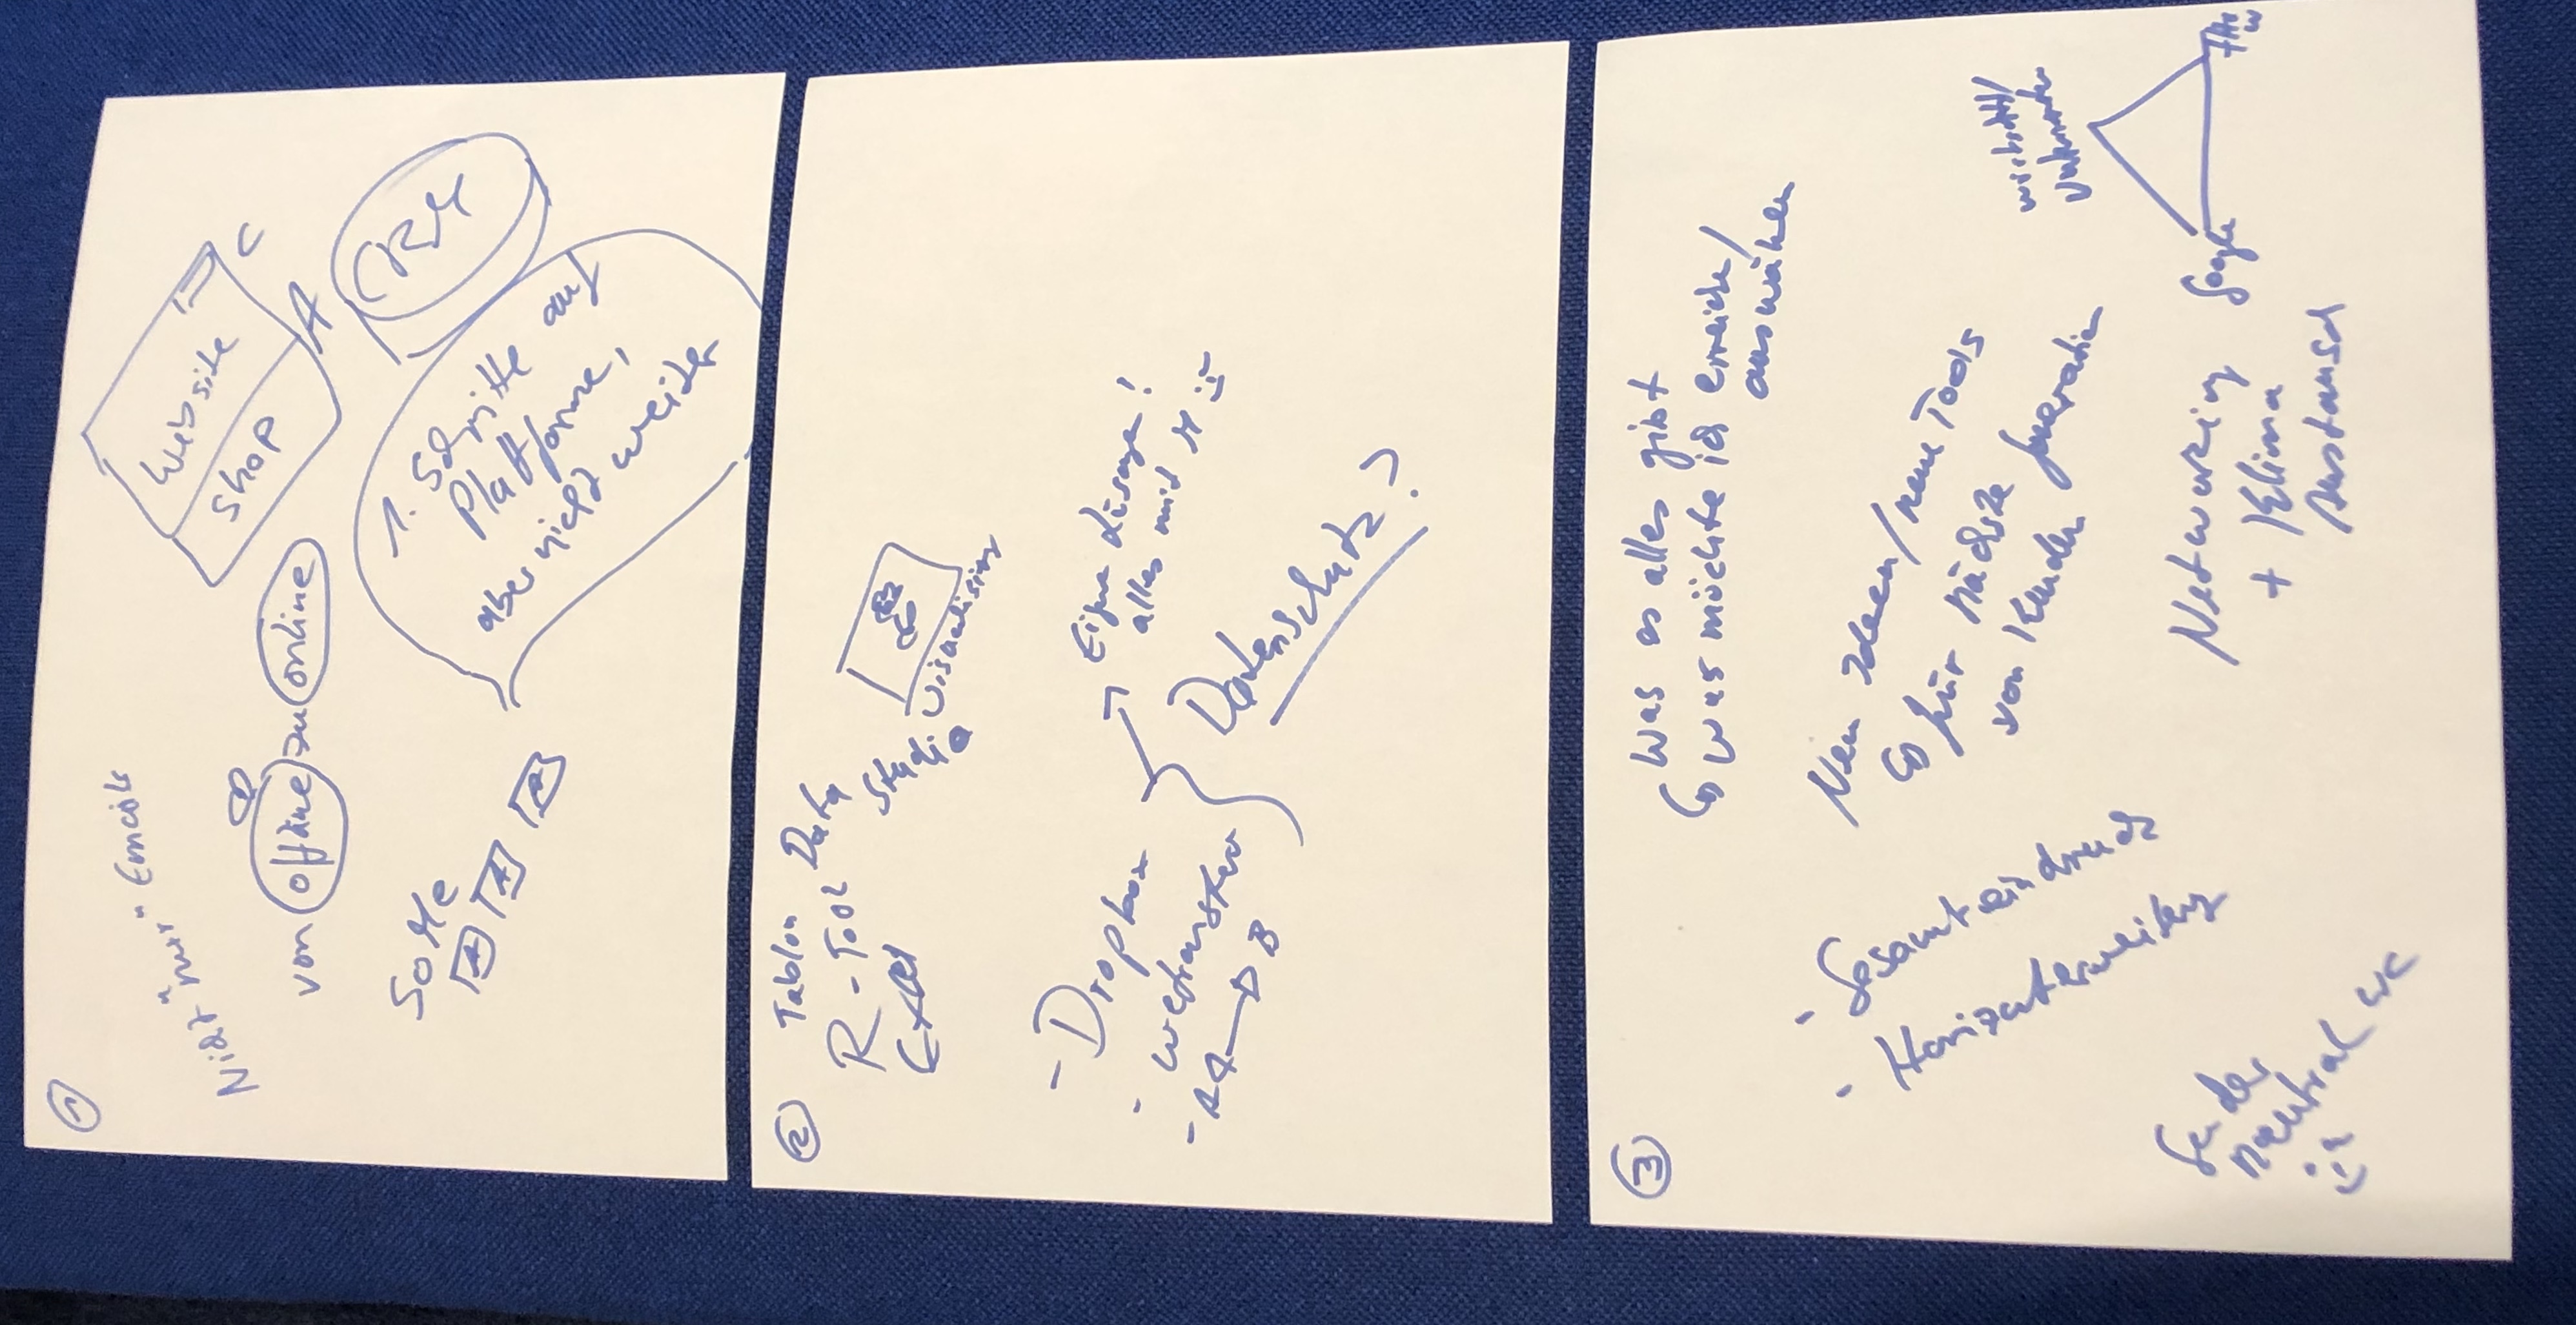 ①
Nicht "nur" Emails
von offline zu online
Website
Shop
C
A
CRM
SoMe
A A A
1. Schritte auf
Plattforme,
aber nicht weiter
②
Tablou
R-Tool
Excel
Data
Studio
Visualisier
- Dropbox
- Wetransfer
- A → B
Eigene Lösunge!
alles mid M :-)
Datenschutz?
③
Was es alles gibt
Was möchte ich erreiche/
auswählen
- Gesamteindruck
- Horizonterweiterg
Neue Ideen/neue Tools
für nächste Generation
von Kunden
Wirtschaft/
Unternehmen
Google
Networking
+ Klima
Austausch
Gender
neutral WC
:-)